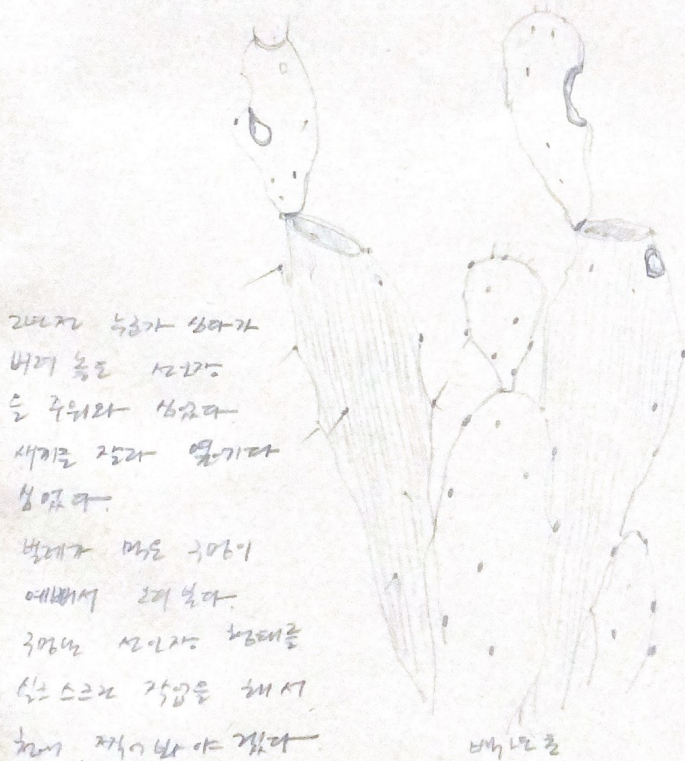 2년전 누군가 심다가
버려 놓은 선인장
을 주워와 심었다.
새끼를 잘라 옮기다
심었다.
벌레가 먹은 구멍이
예뻐서 그려 본다.
구멍난 선인장 형태를
실크스크린 작업을 해서
천에 찍어 봐야 겠다
백년초